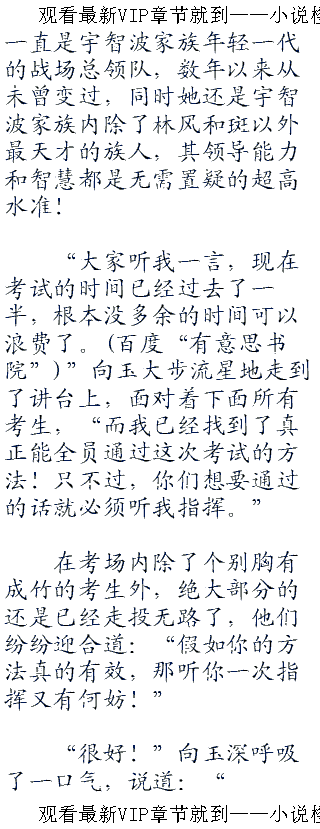 观看最新VIP章节就到——小说检
一直是宇智波家族年轻一代
的战场总领队，数年以来从
未曾变过，同时她还是宇智
波家族内除了林风和斑以外
最天才的族人，其领导能力
和智慧都是无需置疑的超高
水准！
“大家听我一言，现在
考试的时间已经过去了一
半，根本没多余的时间可以
浪费了。(百度“有意思书
院”)”向玉大步流星地走到
了讲台上，面对着下面所有
考生，“而我已经找到了真
正能全员通过这次考试的方
法！只不过，你们想要通过
的话就必须听我指挥。”
在考场内除了个别胸有
成竹的考生外，绝大部分的
还是已经走投无路了，他们
纷纷迎合道：“假如你的方
法真的有效，那听你一次指
挥又有何妨！”
“很好！”向玉深呼吸
了一口气，说道：“
观看最新VIP章节就到——小说检